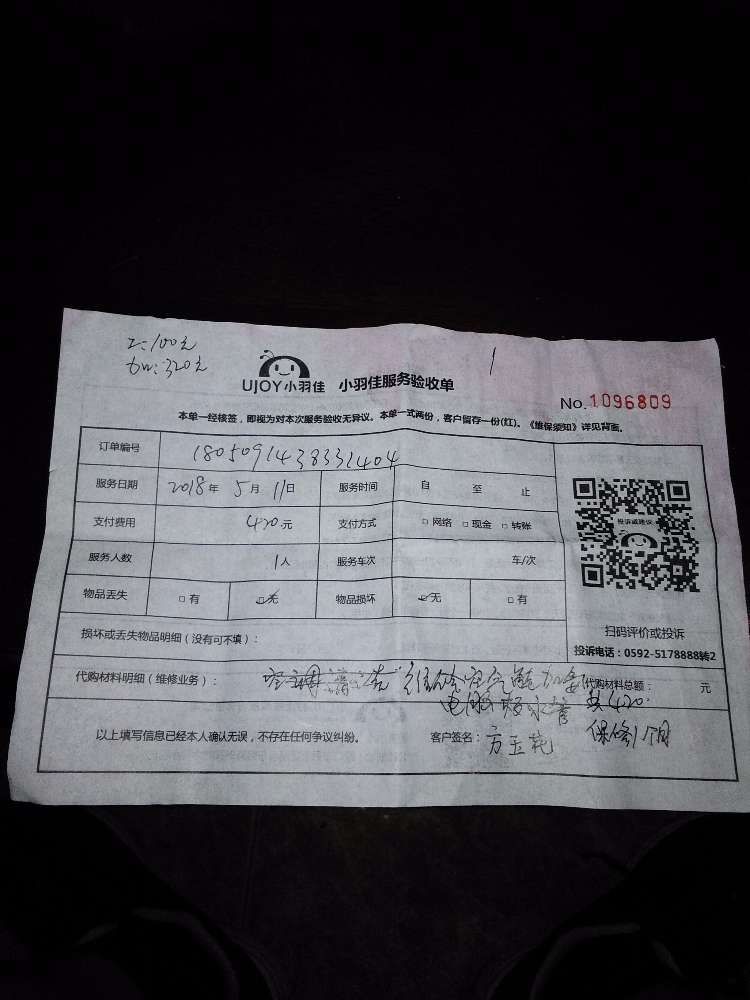 工:100元
材:320元
1
UJOY小羽佳 小羽佳服务验收单
No.1096809
本单一经核签，即视为对本次服务验收无异议。本单一式两份，客户留存一份(红)。《维保须知》详见背面。
订单编号 1805091438331404
服务日期 2018年5月11日 服务时间 自 至 止
支付费用 420元 支付方式 □网络 □现金 □转账
投诉或建议
服务人数 1人 服务车次 车/次
物品丢失 □有 ☑无 物品损坏 ☑无 □有
扫码评价或投诉
投诉电话：0592-5178888转2
损坏或丢失物品明细（没有可不填）：
代购材料明细（维修业务）： 空调清洗 代购材料总额： 元
电脑 共420.
以上填写信息已经本人确认无误，不存在任何争议纠纷。 客户签名：方玉花 保修1个月